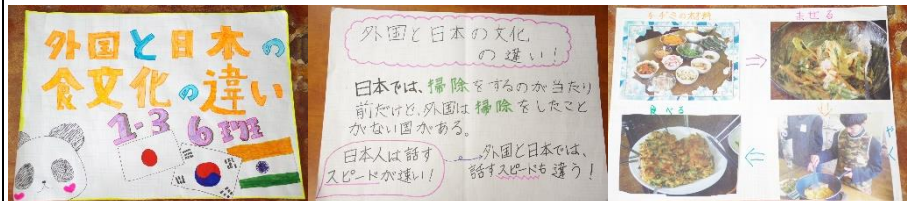 外国と日本の
食文化の違い
1-3 6班
外国と日本の文化
の違い!
日本では、掃除をするのが当たり
前だけど、外国は掃除をしたこと
がない国がある。
日本人は話す
スピードが速い!
外国と日本では、
話すスピードも違う!
の材料
まぜる
やく
食べる